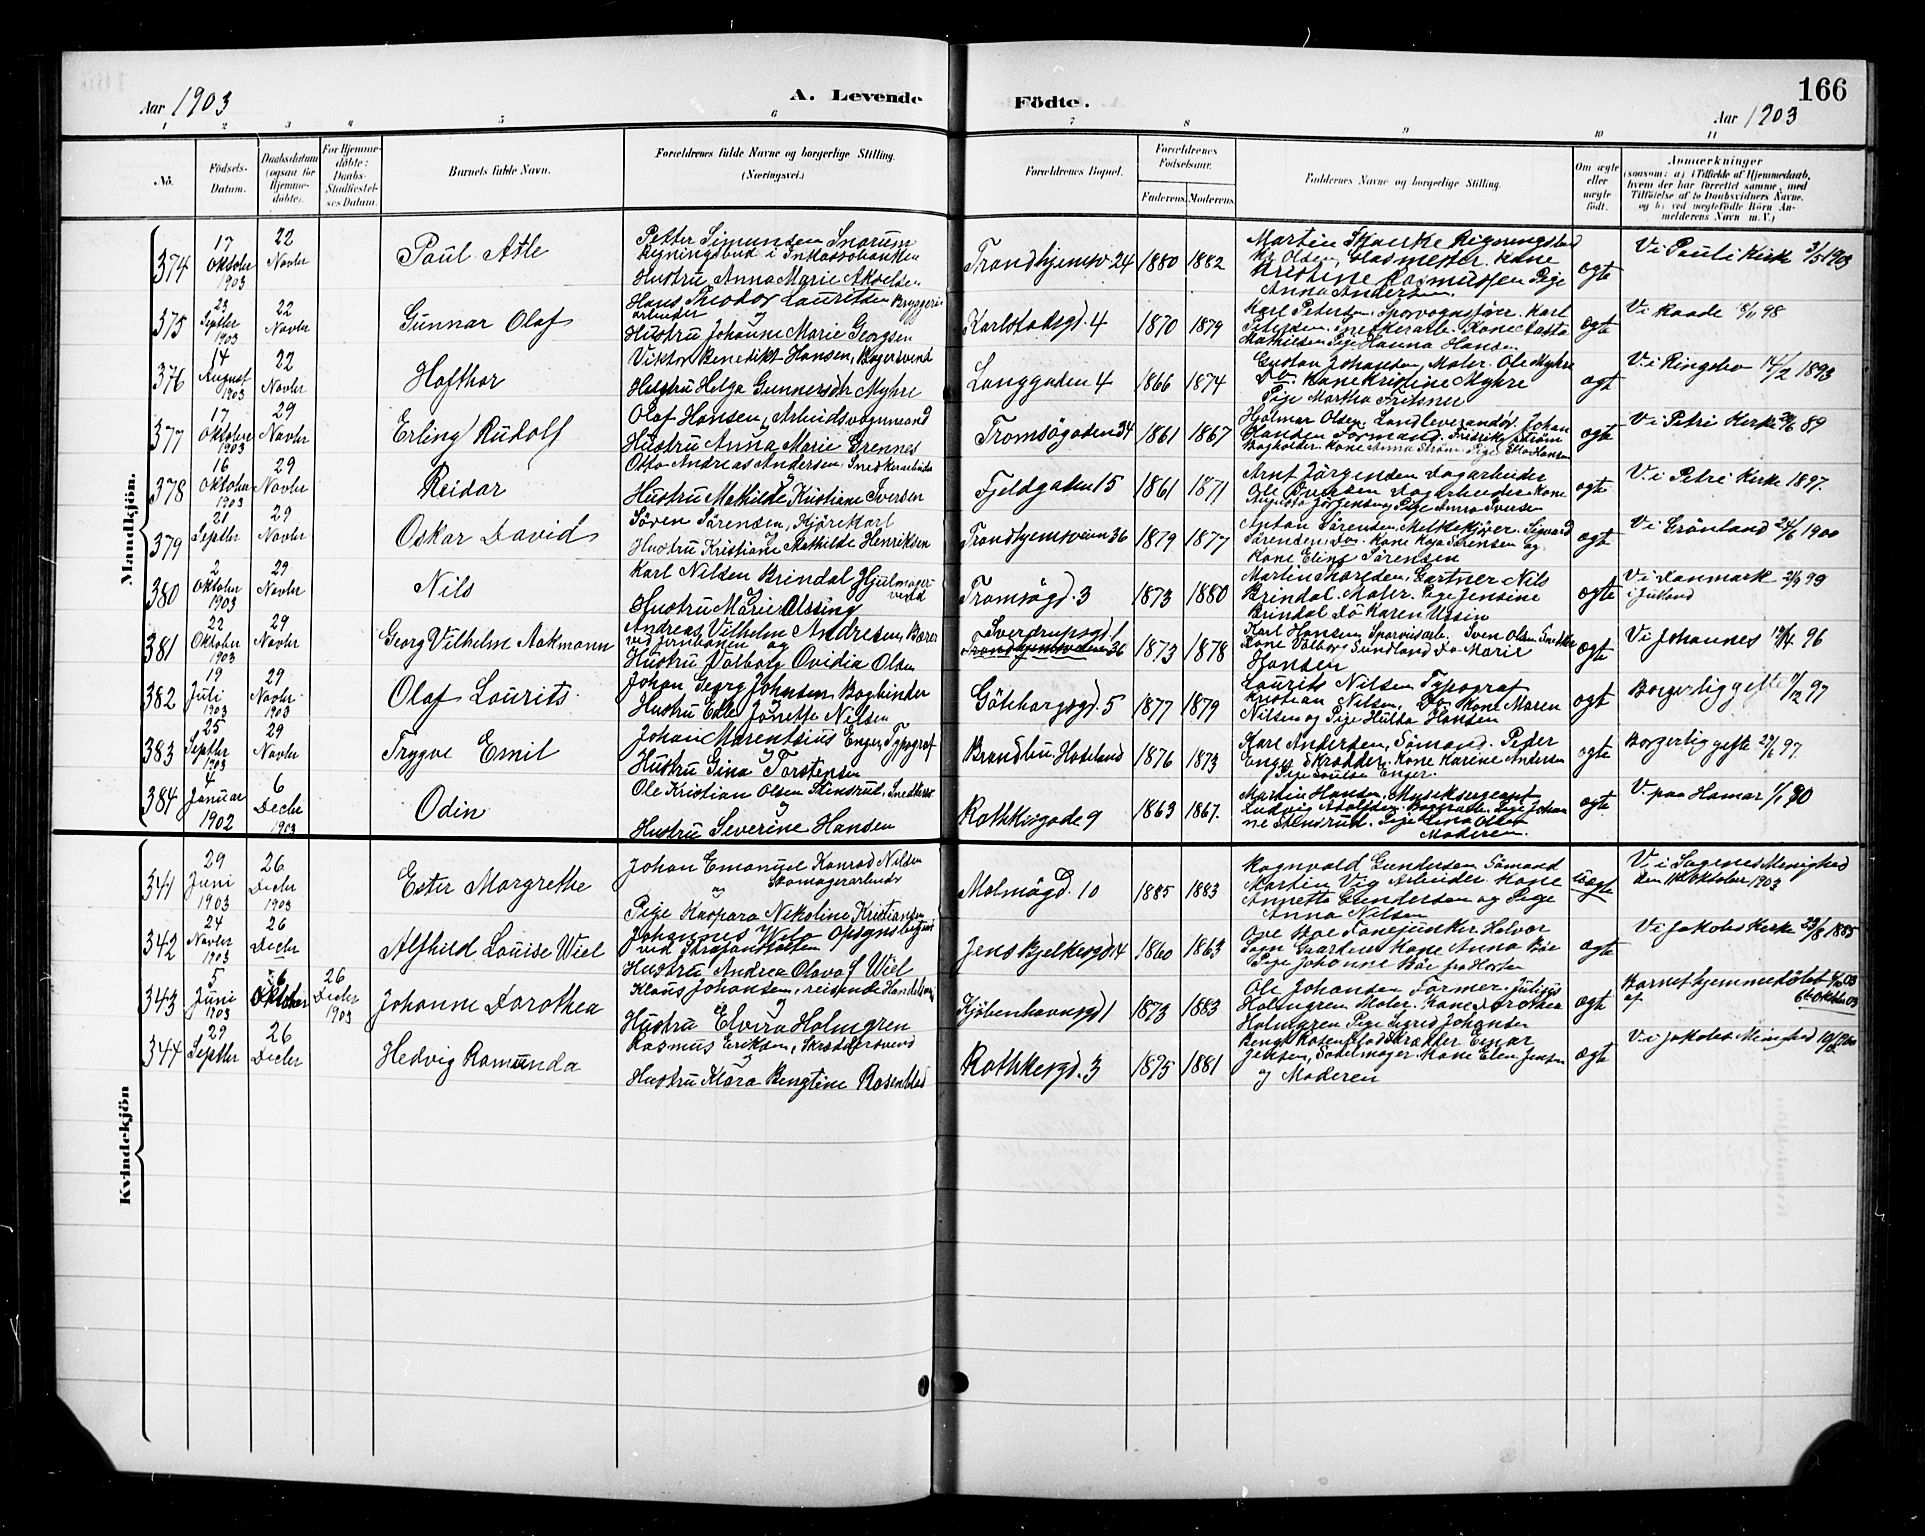 166
Aar 1903 A. Levende Födte. Aar 1903
1 2 3 4 5 6 7 8 9 10 11
No.
Födsels-
Datum.
Daabsdatum
(ogsaa for
Hjemme-
döbte).
For Hjemme-
döbte:
Daabs-
Stadfæstel-
ses Datum.
Barnets fulde Navn.
Forældrenes fulde Navne og borgerlige Stilling.
(Næringsvei.)
Forældrenes Bopæl.
Forældrenes
Födselsaar.
Faderens. Moderens.
Faddernes Navne og borgerlige Stilling.
Om ægte
eller
uægte
födt.
Anmærkninger
(saasom: a) i Tilfælde af Hjemmedaab,
hvem der har forrettet samme, med
Tilföielse af to Daabsvidners Navne,
og b) ved uægtefödte Börn An-
melderens Navn m. V.)
Mandkjön.
374
17
Oktober
1903
22
Novbr
Paul Atle
Petter Simunden Snarum
Regningsbud i Inkassobanken
Hustru Anna Marie Akselsen
Trondhjemsv 24
1880
1882
Martin Skauke Regningsbud
Olsen, Glasmester. Kone
Kristine Rasmussen Pige
Anna Andersen
ægte
V i Pauli Kirk 3/5 1903
375
23
Septbr
1903
22
Novbr
Gunnar Olaf
Hans Theodor Lauritsen Bryggeri-
arbeider og
Hustru Johanne Marie Georgsen
Karlstadsgd. 4
1870
1879
Karl Petersen, Sporvognsfører. Karl
Petersen. Snekkerarb. Kone Aasta
Mathiesen Pige Hanna Hansen
ægte
V i Raade 18/11 98
376
14
August
1903
22
Novbr
Hafthor
Viktor Benedikt Hansen, Bagersvend
Hustru Helga Gunnersdtr Myhre
Langgaden 4
1866
1874
Gustav Johansen, Maler. Ole Myhre
Do. Kone Kristine Myhre
Pige Martha Fritsner
ægt
V i Ringebo 14/2 1893
377
17
Oktober
1903
29
Novbr
Erling Rudolf
Olaf Hansen, Arbeidsvognmand
Hustru Anna Marie Grennes
Tromsögaden 34
1861
1867
Hjalmar Olsen Landleverandør. Johan
Formand. Fridrik Strøm
Bogholder. Kone Anna Strøm. Pige
ægte
V i Petri Kirke 89
378
16
Oktober
1903
29
Novbr
Reidar
Otto Andreas Andersen, Snedkerarbeider
Hustru Mathilde Kristine Iversen
Fjeldgaden 15
1861
1871
Arnt Jürgensen Dagarbeider
Ole Iversen Dagarbeider. Kone
Augusta Jørgensen, Pige Anna Iversen
ægte
V i Petri Kirke 1897.
379
21
Septbr
29
Novbr
Oskar David
Sören Sörensen, Kjörekarl
Hustru Kristiane Mathilde Henriksen
Trondhjemsveien 36
1879
1877
Anton Sörensen, Melkekjører. Sigvard
Sörensen, Do. Kone Kaja Sörensen og
Kone Eline Sörensen
ægte
V i Grönland 24/6 1900
380
2
Oktober
1903
29
Novbr
Nils
Karl Nilsen Brindal Hjulmager-
svend
Hustru Marie Ussing
Tromsögd. 3
1873
1880
Martin Gartner Nils
Brindal. Maler. Pige Jensine
Brindal Do Karen Ussin
ægte
V i Danmark 2/9 99
i Jutland
381
22
Oktober
1903
29
Novbr
Georg Vilhelm Aakmann
Andreas Vilhelm Andresen, Bærer
ved Jernbanen og
Hustru Valborg Ovidia Olsen
Sverdrupsgd. 1
Trondhjemsveien 36
1873
1878
Karl Hansen, Sporveisarb. Sven Olsen Snedker
Kone Valborg Sundland Do Marie
Hansen
ægte
V i Johannes 96
382
19
Juli
1903
29
Novbr
1903
Olaf Laurits
Johan Georg Johnsen Bogbinder
Hustru Edle Janette Nilsen
Göteborgsgd. 5
1877
1879
Laurits Nilsen Typograf
Kristian Nilsen, Do. Kone Maren
Nilsen og Pige Hulda Hansen
ægt
Borgerlig gifte 97
383
25
Septbr
1903
29
Novbr
Trygve Emil
Johan Marentsius Enger, Typograf
Hustru Gina Torstensen
Brandbu Hadeland
1876
1873
Karl Andersen, Sömand. Peder
Enger Skrædder. Kone Karine Andersen
Pige Louise Enger.
ægte
Borgerlig gifte 29/6 97.
384
4
Januar
1902
6
Decbr
1903
Odin
Ole Kristian Olsen Stensrud, Snedker
Hustru Severine Hansen
Rathkesgade 9
1863
1867.
Martin Hansen, Musiksergeant
Ludvig Adolfsen. Pige Johan
ne Stensrud. Pige Lina Olsen
Moderen.
ægte
V. paa Hamar 1/1 90
Kvindekjön
341
29
Juni
1903
26
Decbr
1903
Ester Margrethe
Johan Emanuel Konrad Nilsen
og Skomagerarbeider
Pige Kaspara Nikoline Kristiansen
Malmögd. 10
1885
1883
Ragnvald Gundersen Sömand
Martin Vig Arbeider. Kone
Annette Gundersen og Pige
Anna Nilsen
uægte
V i Sagenes Menighed
den 11te Oktober 1903
342
24
Novbr
1903
26
Decbr
Alfhild Louise Wiel
Johannes Wiel Opsynsbetjent
ved Strafanstalten
Hustru Andrea Olava f Wiel
Jens Bjelkesgd. 4
1860
1863
Ove Boe Kanejunker Halvor
Gaardbr. Kone Anna Böe
Pige Johanne Böe fra Horten
ægte
V i Jakobs Kirke 23/8 1885
343
5
Juni
1903
6
Oktober
26
Decbr
1903
Johanne Dorothea
Klaus Johansen, reisende Handelsm.
Hustru Elvira Holmgren
Kjöbenhavnsgd 1
1873
1883
Ole Johansen Farmer. Julius
Holmgren Maler. Kone Dorothea
Holmgren Pige Sigrid Johansen
ægte
Barnet hjemmedöbt 6/10 03
af
6te Oktober 03
344
29
Septbr
26
Decbr
Hedvig Ramunda
Rasmus Eriksen, Skræddersvend
Hustru Klara Bengtine Rosenblad
Rathkesgd. 3
1875
1881
Bengt Rosenblad Skrædder Einar
Jensen, Sadelmager. Kone Elen Jensen
og Moderen
ægte
V i Jakobs Menighed